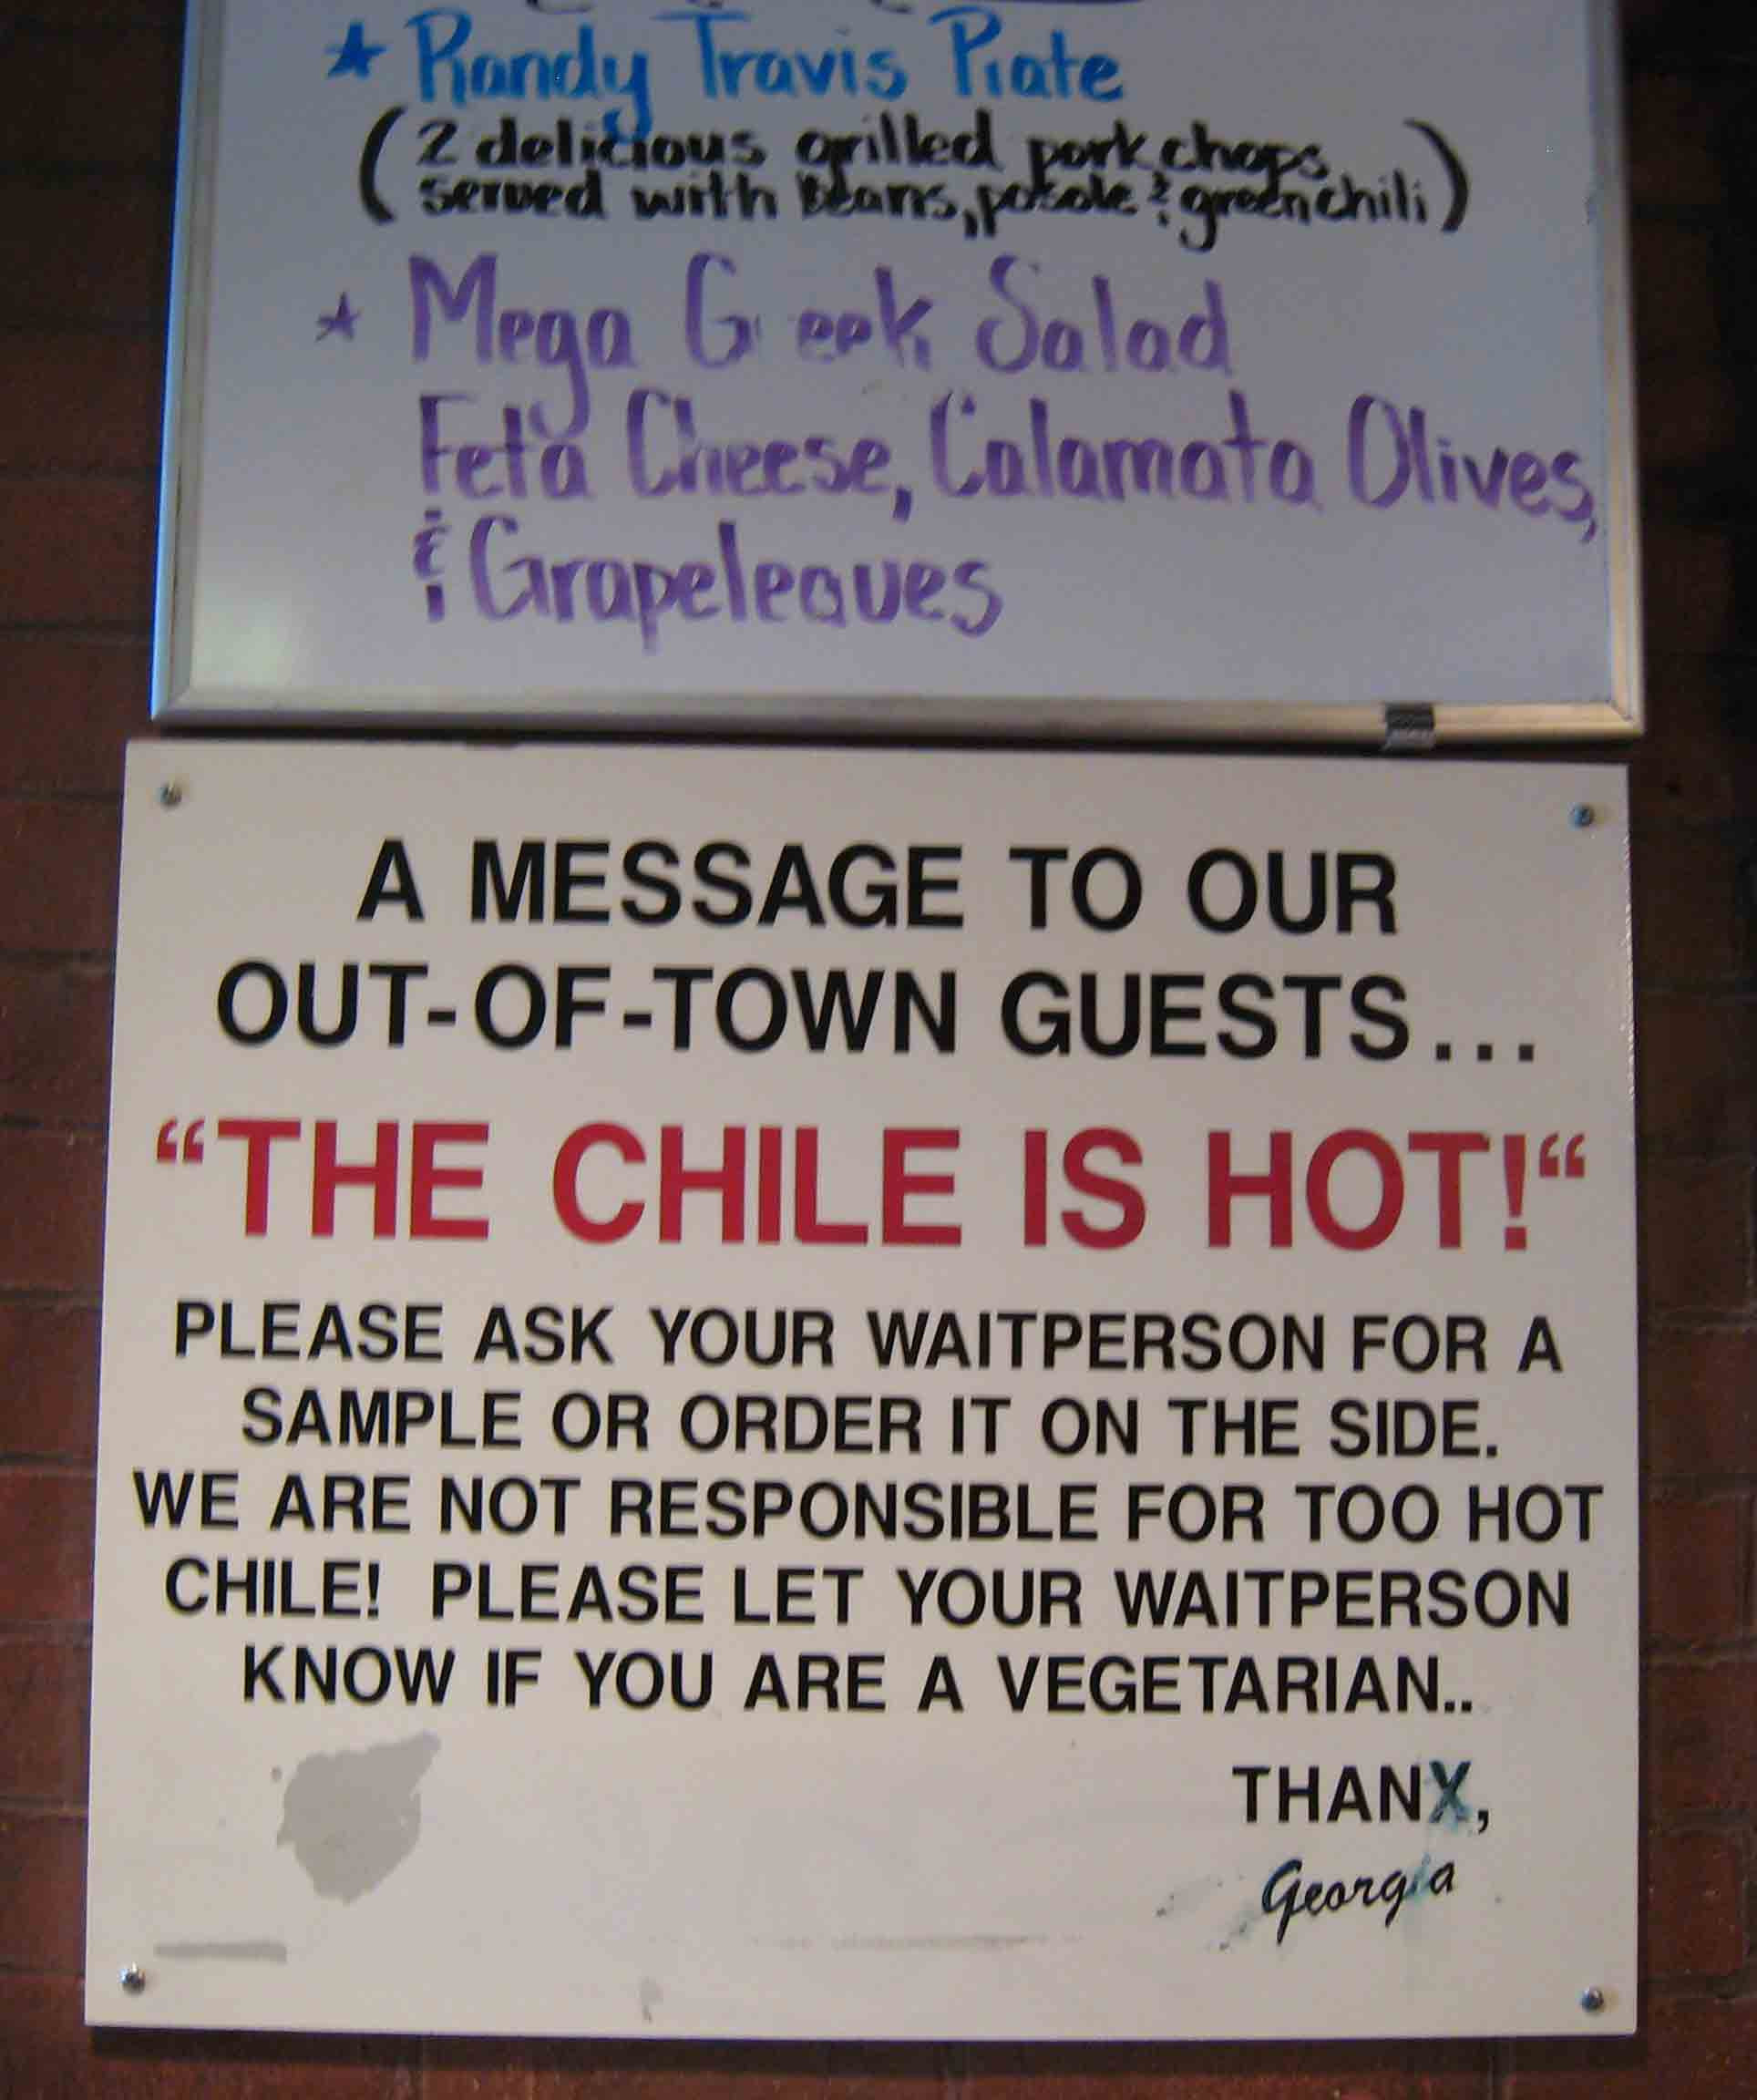 ★ Randy Travis Plate
(2 delicious grilled pork chops
served with beans, posole & green chili)
★ Mega Greek Salad
Feta Cheese, Calamata Olives,
& Grapeleaves
A MESSAGE TO OUR
OUT-OF-TOWN GUESTS...
“THE CHILE IS HOT!“
PLEASE ASK YOUR WAITPERSON FOR A
SAMPLE OR ORDER IT ON THE SIDE.
WE ARE NOT RESPONSIBLE FOR TOO HOT
CHILE! PLEASE LET YOUR WAITPERSON
KNOW IF YOU ARE A VEGETARIAN..
THANX,
Georgia